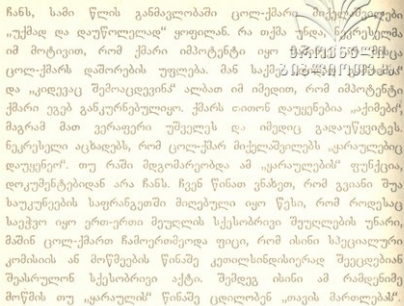 ჩანს, სამი წლის განმავლობაში ცოლ-ქმარი მიქელაშვილები
„უქმად და დაუწოლელად“ ყოფილან. რა თქმა უნდა, ნეკრესელმა
იმ მოტივით, რომ ქმარი იმპოტენტი იყო
ცოლ-ქმარს დაშორების უფლება. მან საქმე
და „კიდევაც შემოაცდევინა“ ალბათ იმ იმედით, რომ იმპოტენტი
ქმარი ეგებ განკურნებულიყო. ქმარს თითონ დაუყენებია „აქიმები“,
მაგრამ მათ ვერაფერი უშველეს და იმედიც გადაუწყვიტეს.
ნეკრესელი აცხადებს, რომ ცოლ-ქმარ მიქელაშვილებს „ყარაულებიც
დაუყენეო“. თუ რაში მდგომარეობდა ამ „ყარაულების“ ფუნქცია,
დოკუმენტებიდან არა ჩანს. ჩვენ წინათ ვნახეთ, რომ გვიანი შუა
საუკუნეების საფრანგეთში მიღებული იყო წესი, რომ როდესაც
საეჭვო იყო ერთ-ერთი მეუღლის სქესობრივი შეუღლების უნარი,
მაშინ ცოლ-ქმართ ჩამოერთმეოდა ფიცი, რომ ისინი სპეციალური
კომისიის ან მოწმეების წინაშე კეთილსინდისიერად შეეცდებიან
შეასრულონ სქესობრივი აქტი. შემდეგ ისინი ამ რამდენიმე
მოწმის თუ „ყარაულის“ წინაშე ცდილობენ „თავის მართლებას“